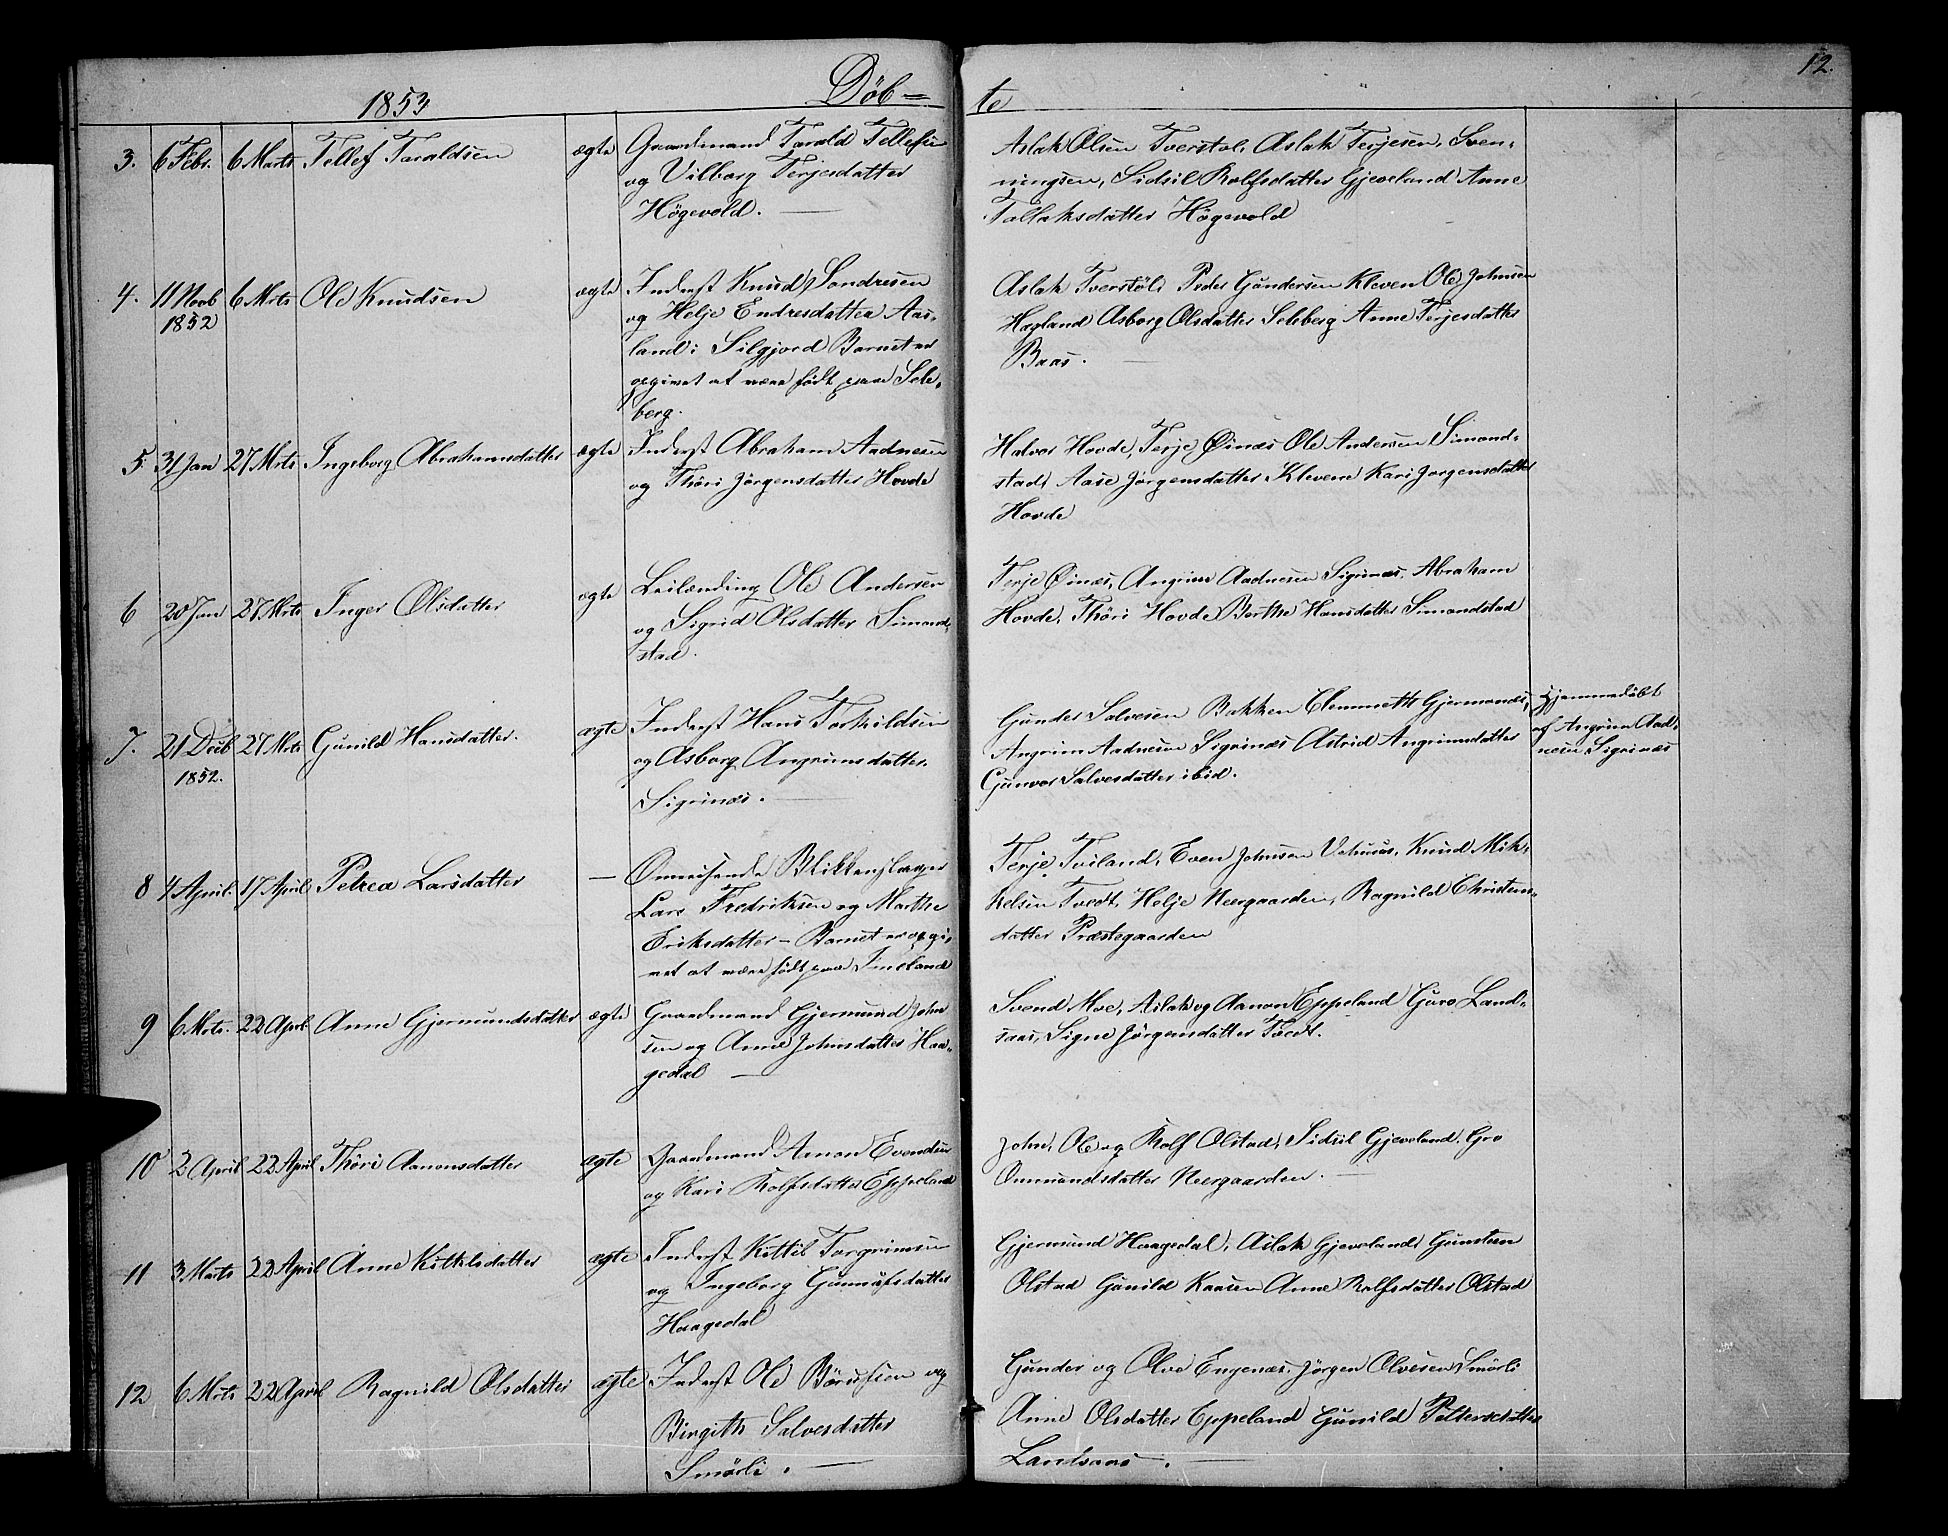 12.
1853 Döb = te
3. 6 Febr. 6 Marts Tellef Taraldsen ægte Gaardmand Tarald Tellefsen
og Vilborg Terjesdatter
Högevold. —
Aslak Olsen Tverstøl, Aslak Terjesen, Sven-
ningsen, Sidsil Rolfsdatter Gjeveland Anne
Tallaksdatter Högevold
4. 11 Novb 6 Mrts Ole Knudsen ægte Inderst Knud Sondresen
1852
og Helje Endresdatter Aas-
land i Silgjord Barnet er
opgivet at være född paa Sele-
berg.
Aslak Tverstöl, Peder Gundersen Kleven Ole Johnsen
Hagland Asborg Olsdatter Seleberg Anne Terjesdatter
Baas. —
5 31 Jan 27 Mrts Ingeborg Abrahamsdatter ægte Inderst Abraham Aadnesen
og Thöri Jörgensdatter Hovde
Halvor Hovde, Terje Øinæs Ole Andersen Simond-
stad, Aase Jörgensdatter Klevene Kari Jorgensdatter
Hovde
6 20 Jan 27 Mrts Inger Olsdatter ægte Leilænding Ole Andersen
og Sigrid Olsdatter Simond-
stad.
Terje Øinæs, Angrim Aadnesen Sigrinæs, Abraham
Hovde, Thöri Hovde Berthe Hansdatter Simondstad
7. 21 Decb 27 Mrts Gunild Hansdatter. ægte Inderst Hans Torkildsen
1852.
og Asborg Angrimsdatter
Sigrinæs. —
Gunder Salvesen Bakken Clemmeth Gjermonæs,
Angrim Aadnesen Sigrinæs Astrid Angrimsdatter
Gunvor Salvesdatter ibid.
Hjemmedöbt
af Angrim Aad-
nesen Sigrinæs
8 4 April 17 April Petrea Larsdatter — Omreisende Blikkenslager
Lars Fredriksen og Marthe
Eriksdatter – Barnet er opgi-
vet at være född paa Imeland
Terje Tveiland, Even Johnsen Vehuus, Knud Mik-
kelsen Tvedt, Helje Neergaarden, Ragnild Christens-
datter Præstegaarden
9 6 Mrts. 22 April Anne Gjermundsdatter ægte Gaardmand Gjermund John
sen og Anne Johnsdatter Haa-
gedal —
Svend Moe, Aslak og Aanon Eppeland Guro Land-
saas, Signe Jörgensdatter Tvedt.
10 2 April 22 April Thöri Aanonsdatter ægte Gaardmand Arnon Evendsen
og Kari Rolfsdatter Eppeland
John, Ole og Rolf Olstad, Sidsil Gjeveland, Gro
Ommundsdatter Neergaarden. —
11 3 Marts 22 April Anne Kittelsdatter ægte Inderst Kittil Torgrimsen
og Ingeborg Gunnufsdatter
Haagedal
Gjermund Haagedal, Aslak Gjeveland, Gunsten
Olstad Gunild Kaasen Anne Rolfsdatter Olstad
12 6 Mrts 22 April Ragnild Olsdatter ægte Inderst Ole Börufsen og
Birgith Salvesdatter
Smörli. —
Gunder og Olve Engenæs, Jörgen Olvesen Smörli
Anne Olsdatter Eppeland Gunild Pettersdatter
Landsaas. —